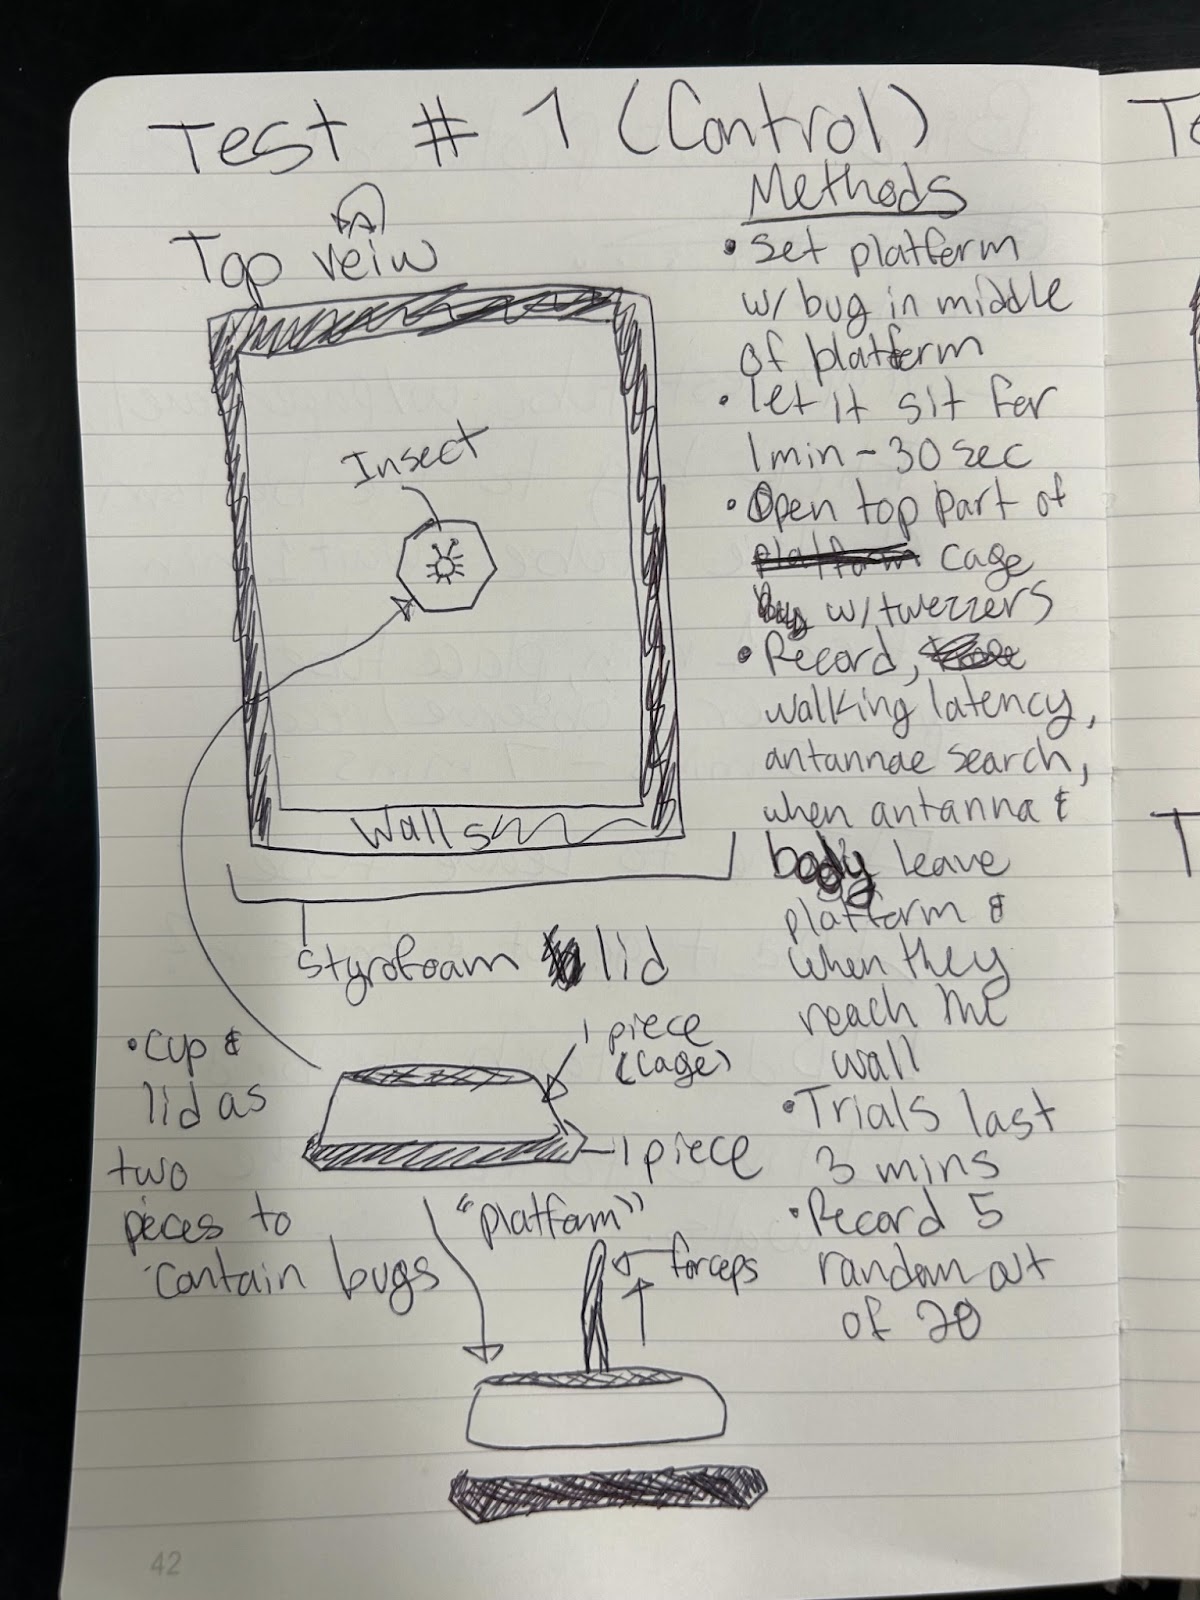 Test # 1 (Control)
Top veiw
Insect
Walls
Styrofoam lid
Methods
• Set platform
w/ bug in middle
of platform
• let it sit for
1min - 30 sec
• Open top part of
platform cage
w/ twezzers
• Record,
walking latency,
antannae search,
when antanna &
body leave
platform &
when they
reach the
wall
• Trials last
3 mins
• Record 5
random out
of 20
• Cup &
lid as
two
pieces to
contain bugs
1 piece
(cage)
1 piece
"platform"
forceps
42
Te
T